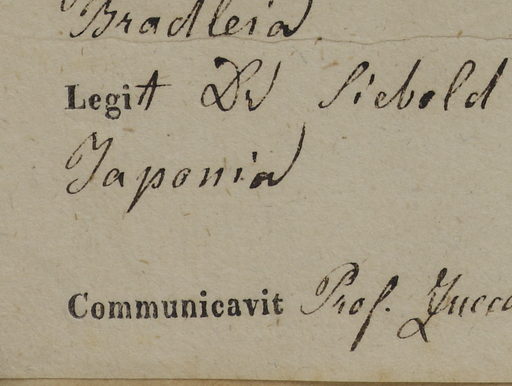 Bradleia
Legit Dr Siebold
Japonia
Communicavit Prof. Zucca